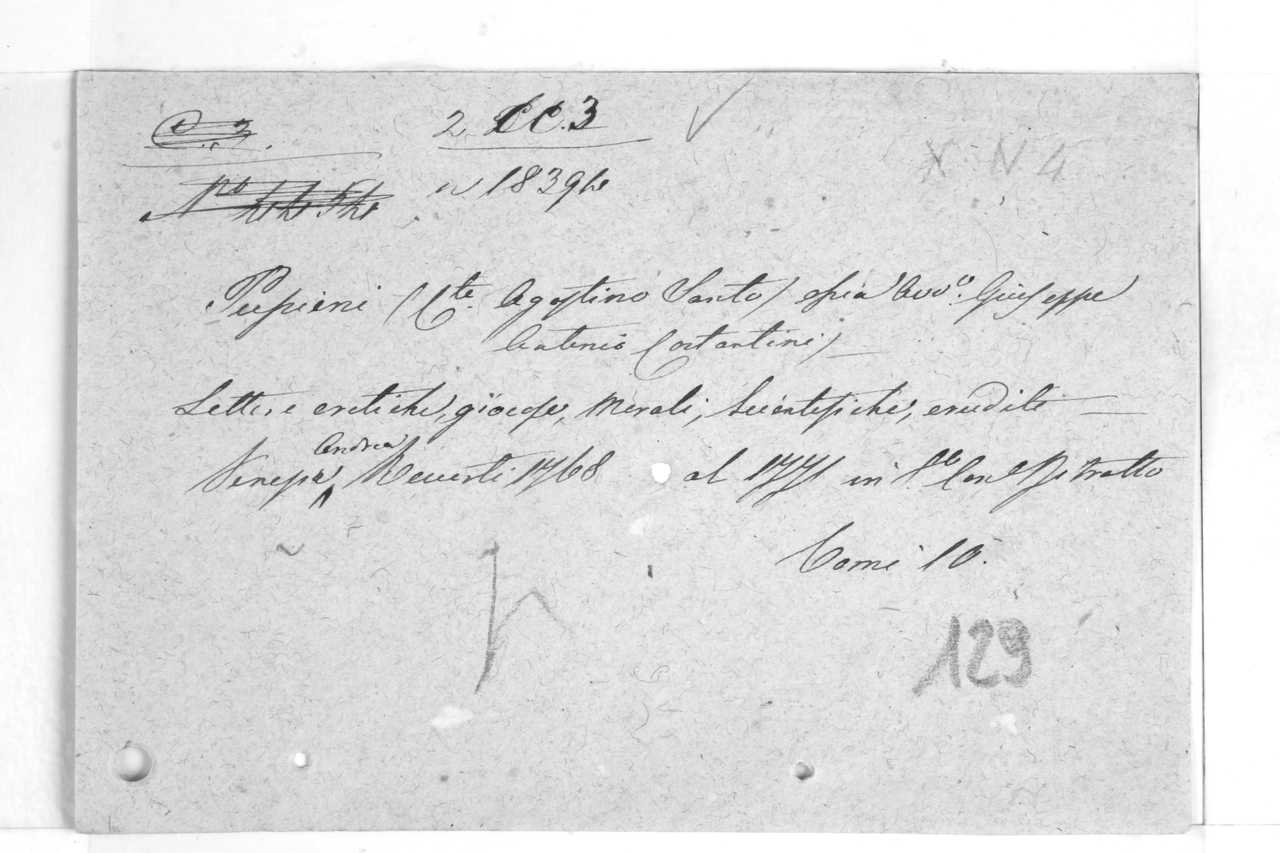 2. CC.3
X N 4
Pupieni (Cte. Agostino Santo) ossia Avvo. Giuseppe
Antonio Costantini)
Lettere critiche, giocose, Morali, Scientifiche, erudite
Andrea
Venezia, 1768 al 1771 in 8o. Con Ritratto
Tomi 10.
129